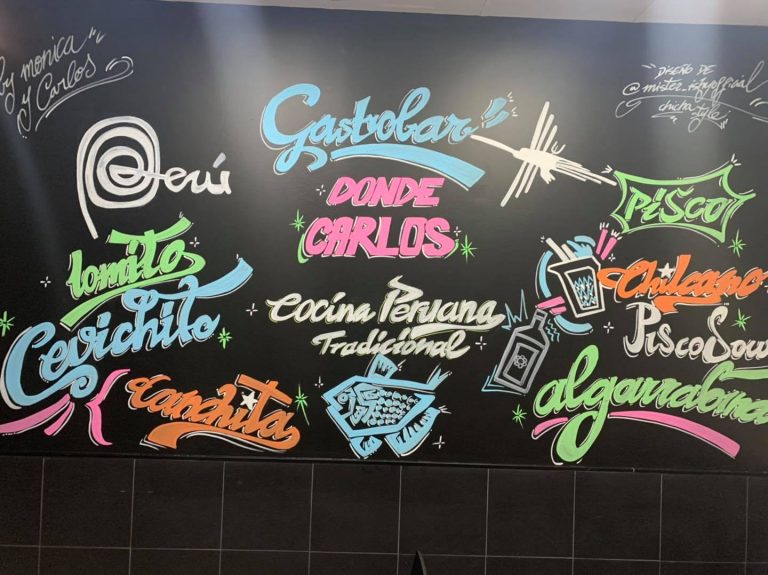 by monica
y Carlos
DISEÑO DE
chicha
style
Gastrobar
Perú
DONDE
CARLOS
PISCO
lomito
Cevichito
Cocina Peruana
Tradicional
Chilcano
Pisco Sour
algarrobina
Canchita